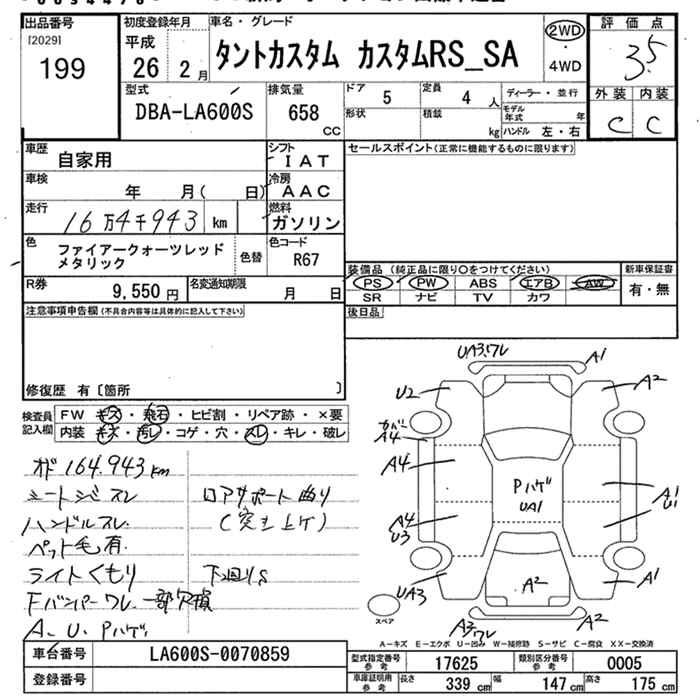 出品番号
[2029]
199
初度登録年月
平成
26 2 月
車名・グレード
タントカスタム カスタムRS_SA
2WD
・
4WD
評価点
3.5
外装 内装
C C
型式
DBA-LA600S
排気量
658
CC
ドア
5
定員
4 人
形状
積載
kg
ディーラー・並行
モデル年式 年
ハンドル 左・右
車歴
自家用
シフト
IAT
車検
年 月( 日)
冷房
AAC
走行
16万4千943 km
燃料
ガソリン
色
ファイアークォーツレッド
メタリック
色替
色コード
R67
R券
9,550 円
名変通知期限
月 日
セールスポイント(正常に機能するものに限ります)
装備品 (純正品に限り○をつけてください)
PS PW ABS エアB AW
SR ナビ TV カワ
新車保証書
有・無
後日品
注意事項申告欄(不具合内容等は具体的に記入して下さい)
修復歴 有〔箇所 〕
検査員
記入欄
FW キズ・飛石・ヒビ割・リペア跡・×要
内装 キズ・汚レ・コゲ・穴・スレ・キレ・破レ
オド 164.943km
シートシミスレ
ロアサポート曲り
ハンドルスレ
(突き上げ)
ペット毛有
ライトくもり
下回りS
Fバンパーワレ 一部欠損
A、U、Pハゲ
UA3.ワレ
A1
U2
A2
A4
A4
A4
U3
UA3
Pハゲ
UA1
A1
U1
A2
A1
A2
A3ワレ
スペア
A-キズ E-エクボ U-凹み W-補修跡 S-サビ C-腐食 XX-交換済
車台番号
LA600S-0070859
登録番号
型式指定番号
参考
17625
類別区分番号
参考
0005
車庫証明用
参考
長さ 339 cm
幅 147 cm
高さ 175 cm